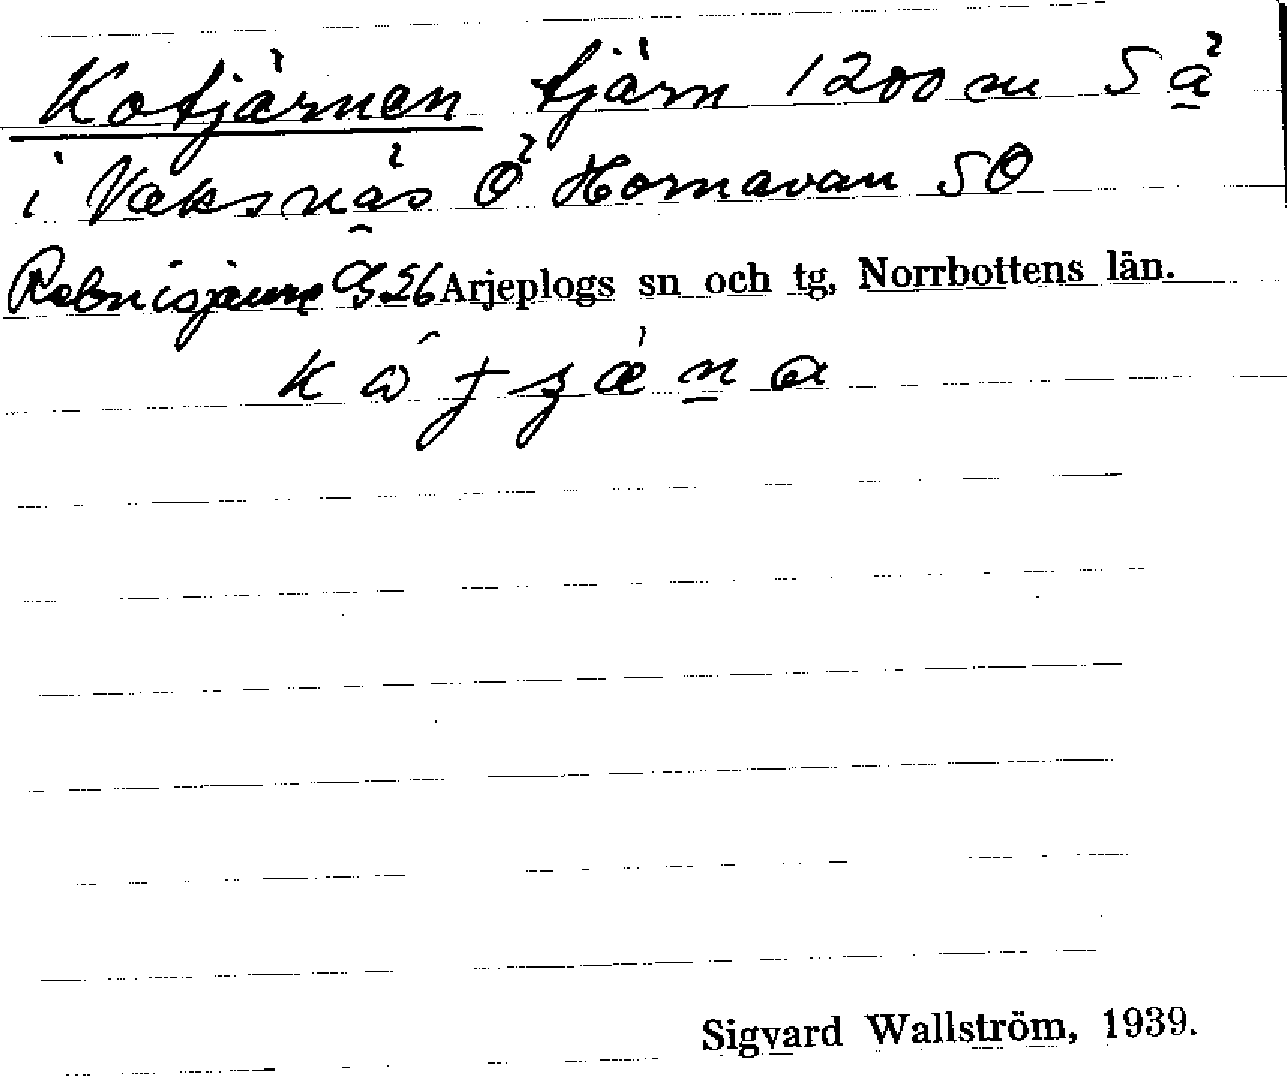 Kotjärnen tjärn 1200 m S ä
i Vaksnäs Ö Hornavan SO
Rebnisjaure G 26 Arjeplogs sn och tg, Norrbottens län.
Sigvard Wallström, 1939.